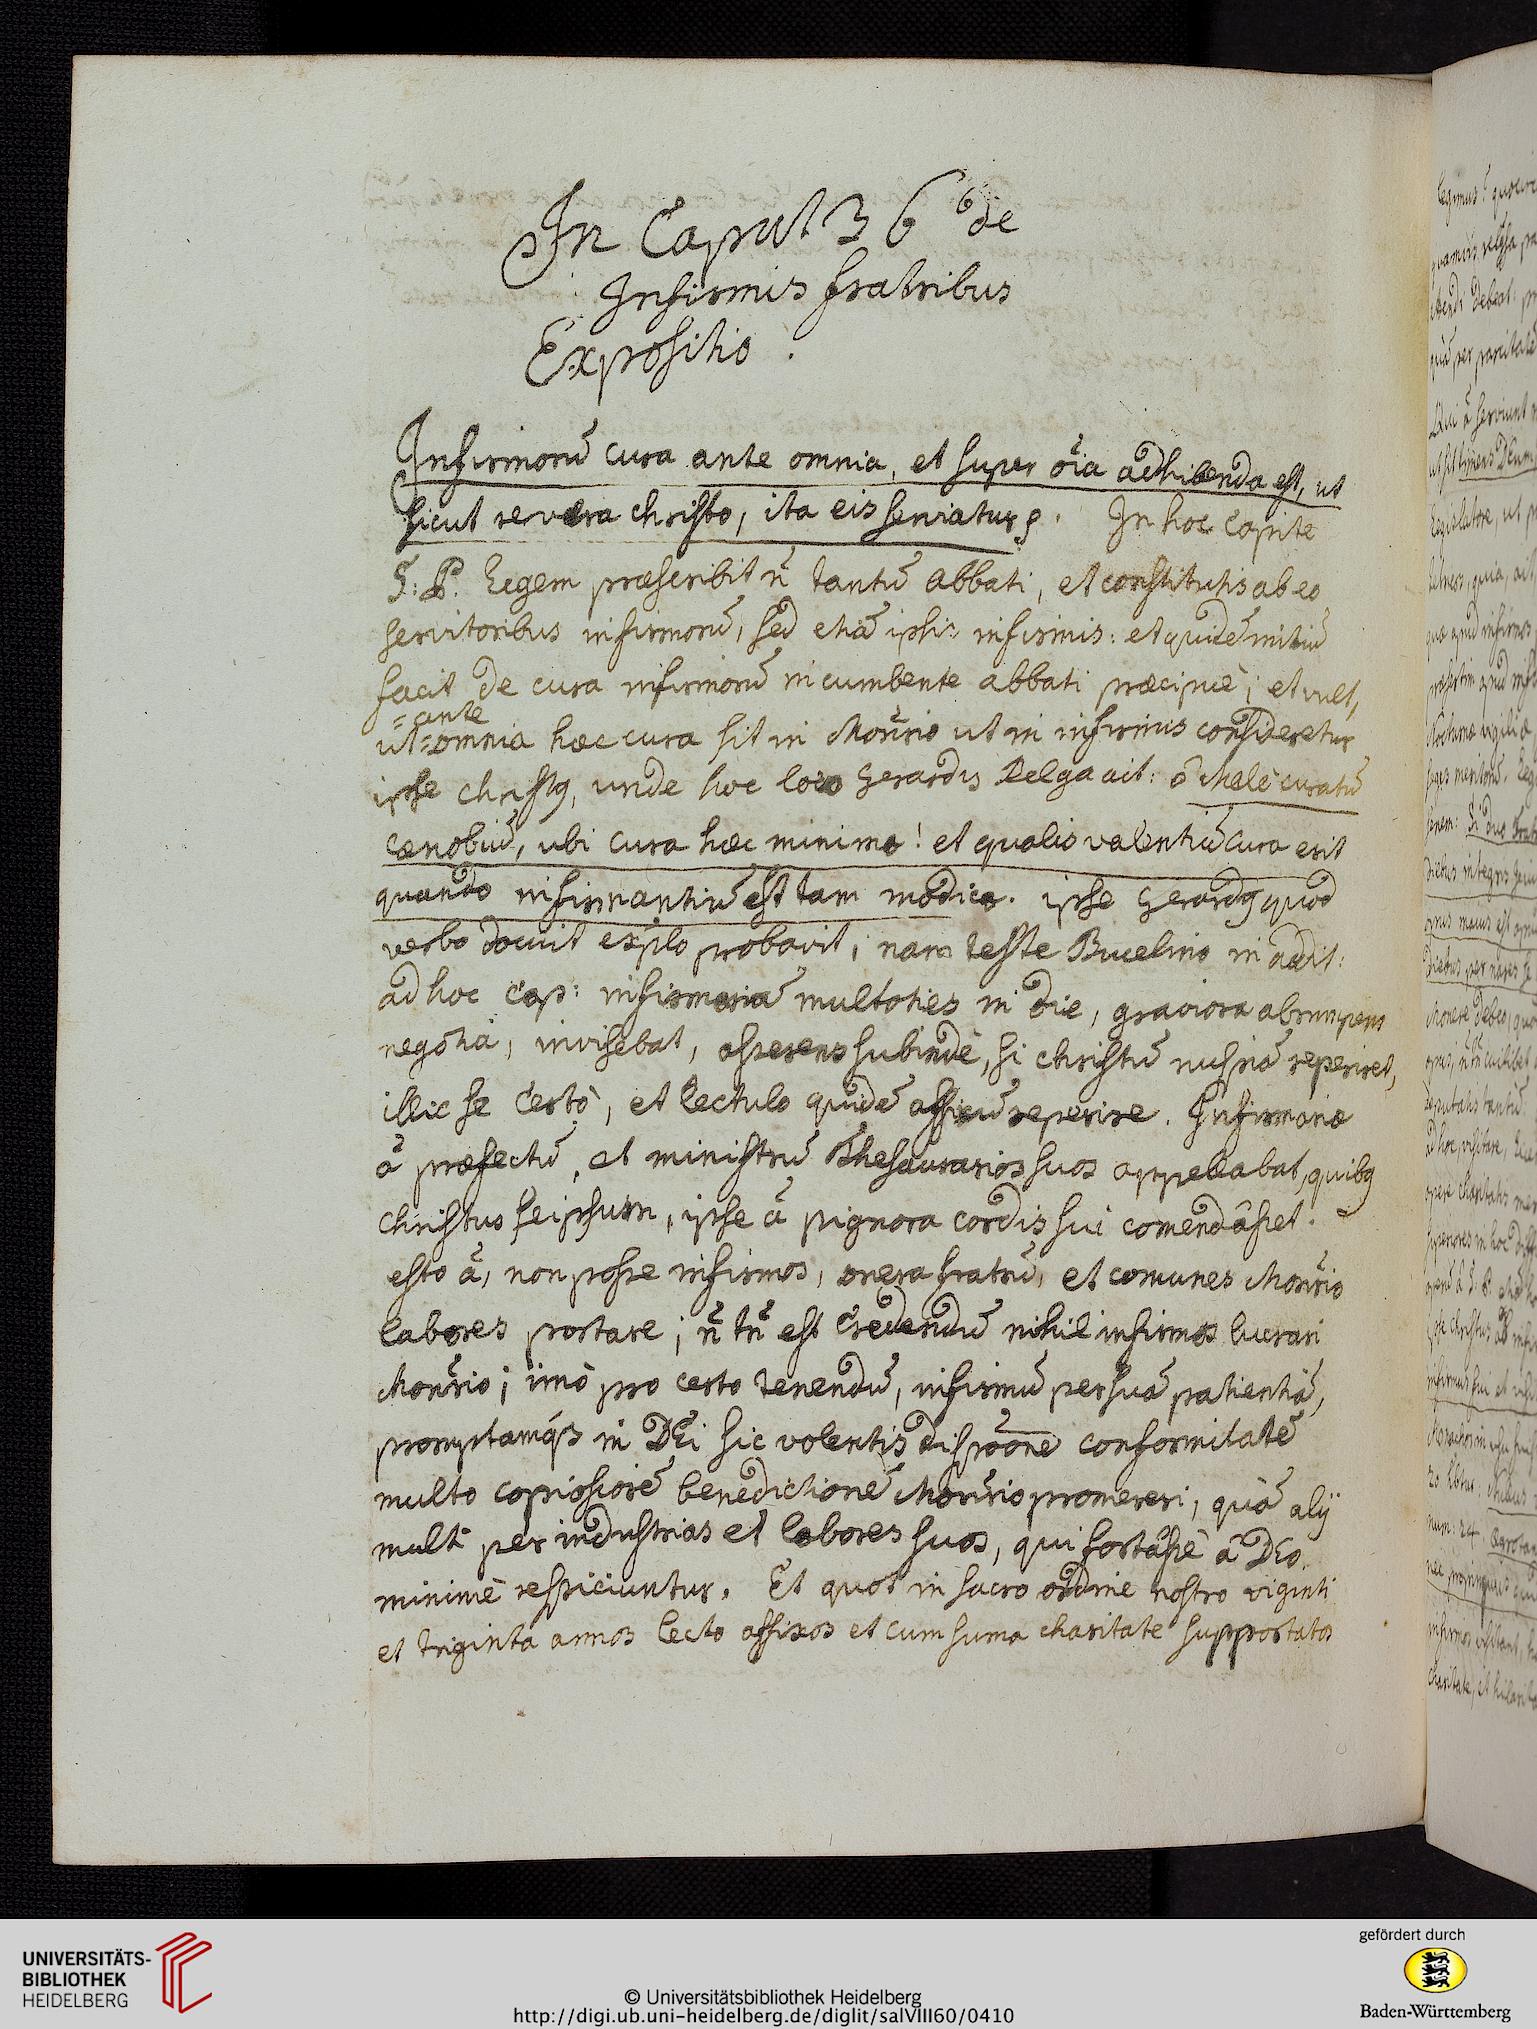 In Caput 36 de
Infirmis fratribus
Expositio.
Infirmorũ cura ante omnia, et super oĩa adhibenda est, ut
sicut revera christo, ita eis serviatur
. In hoc capite
S: P. legem præscribit ñ tantũ abbati, et constitutis ab eo
servitoribus infirmorũ, sed etiã ipsis infirmis: et quidẽ initiũ
facit de cura infirmorũ incumbente abbati præcipuè; et vult,
=ante
ut=omnia hæc cura sit in Monrĩo ut in infirmis consideretur
ipse christꝯ, unde hoc loco Gerardus Belga ait: ô Malè curatũ
cænobiũ, ubi cura hæc minima! et qualis valentiũ cura erit
quando infirmantiũ est tam modica. ipse Gerardꝯ quod
verbo docuit explo probavit; nam teste Bucelino in addit:
ad hoc cap: infirmariã multoties in die, graviora abrumpens
negotia, invisebat, asserens subindè, si christũ nusqã reperiret,
illic se certò, et lectulo quidẽ affixũ reperire. Infirmariæ
ã præfectũ, et ministrũ Thesaurarios suos appellabat, quibꝯ
christus seipsum, ipse ã pignora cordis sui comendâsset.
esto ã, non posse infirmos, onera fratrũ, et comunes Monrĩo
labores portare; ñ tñ est credendũ nihil infirmos lucrari
Monrĩo; imò pro certo tenendũ, infirmũ per suã patientiã,
promptamqs in DEi sic volentis disp͠oone conformitatẽ
multo copiosiorẽ benedictionẽ Monrĩo promereri, quã alij
multi per industrias et labores suos, qui fortâsse â DEo
minimè respiciuntur. Et quot in sacro ordine nostro viginti
et triginta annos lecto affixos et cum suma charitate supportatos
UNIVERSITÄTS-
BIBLIOTHEK
HEIDELBERG
© Universitätsbibliothek Heidelberg
http://digi.ub.uni-heidelberg.de/diglit/salVIII60/0410
gefördert durch
Baden-Württemberg